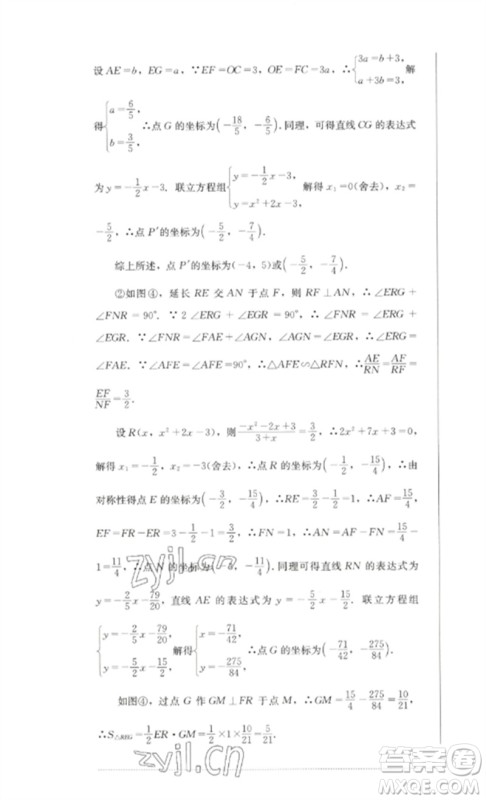 设 AE=b, EG=a, ∵EF=OC=3, OE=FC=3a, ∴{3a=b+3, a+3b=3, 解
得{a=6/5, b=3/5, ∴点 G 的坐标为(-18/5, -6/5). 同理, 可得直线 CG 的表达式
为 y=-1/2x-3. 联立方程组{y=-1/2x-3, y=x²+2x-3, 解得 x₁=0(舍去), x₂=
-5/2, ∴点 P′的坐标为(-5/2, -7/4).
综上所述, 点 P′的坐标为(-4, 5)或(-5/2, -7/4).
②如图④, 延长 RE 交 AN 于点 F, 则 RF⊥AN, ∴∠ERG+
∠FNR=90°. ∵2∠ERG+∠FNR=90°+∠EGR, ∴∠ERG=
∠EGR. ∵∠FNR=∠FAE+∠AGN, ∠AGN=∠EGR, ∴∠FNR=
∠FAE. ∵∠AFE=∠AFE=90°, ∴△AFE∽△RFN, ∴AE/RN=AF/RF=
EF/NF=3/2.
设 R(x, x²+2x-3), 则(-x²-2x+3)/(3+x)=3/2, ∴2x²+7x+3=0,
解得 x₁=-1/2, x₂=-3(舍去), ∴点 R 的坐标为(-1/2, -15/4), ∴由
对称性得点 E 的坐标为(-3/2, -15/4), ∴RE=3/2-1/2=1, ∴AF=15/4,
EF=FR-ER=3-1/2-1=3/2, ∴FN=1, ∴AN=AF-FN=15/4
-1=11/4, ∴点 N 的坐标为(-3, -11/4). 同理可得直线 RN 的表达式为
y=-2/5x-79/20, 直线 AE 的表达式为 y=-5/2x-15/2. 联立方程组
{y=-2/5x-79/20, y=-5/2x-15/2, 解得{x=-71/42, y=-275/84, ∴点 G 的坐标为(-71/42, -275/84)
如图④, 过点 G 作 GM⊥FR 于点 M, ∴GM=15/4-275/84=10/21,
∴S△REG=1/2ER·GM=1/2×1×10/21=5/21.
zyjl.cn
zyjl.cn
答案圈
MXQE.COM